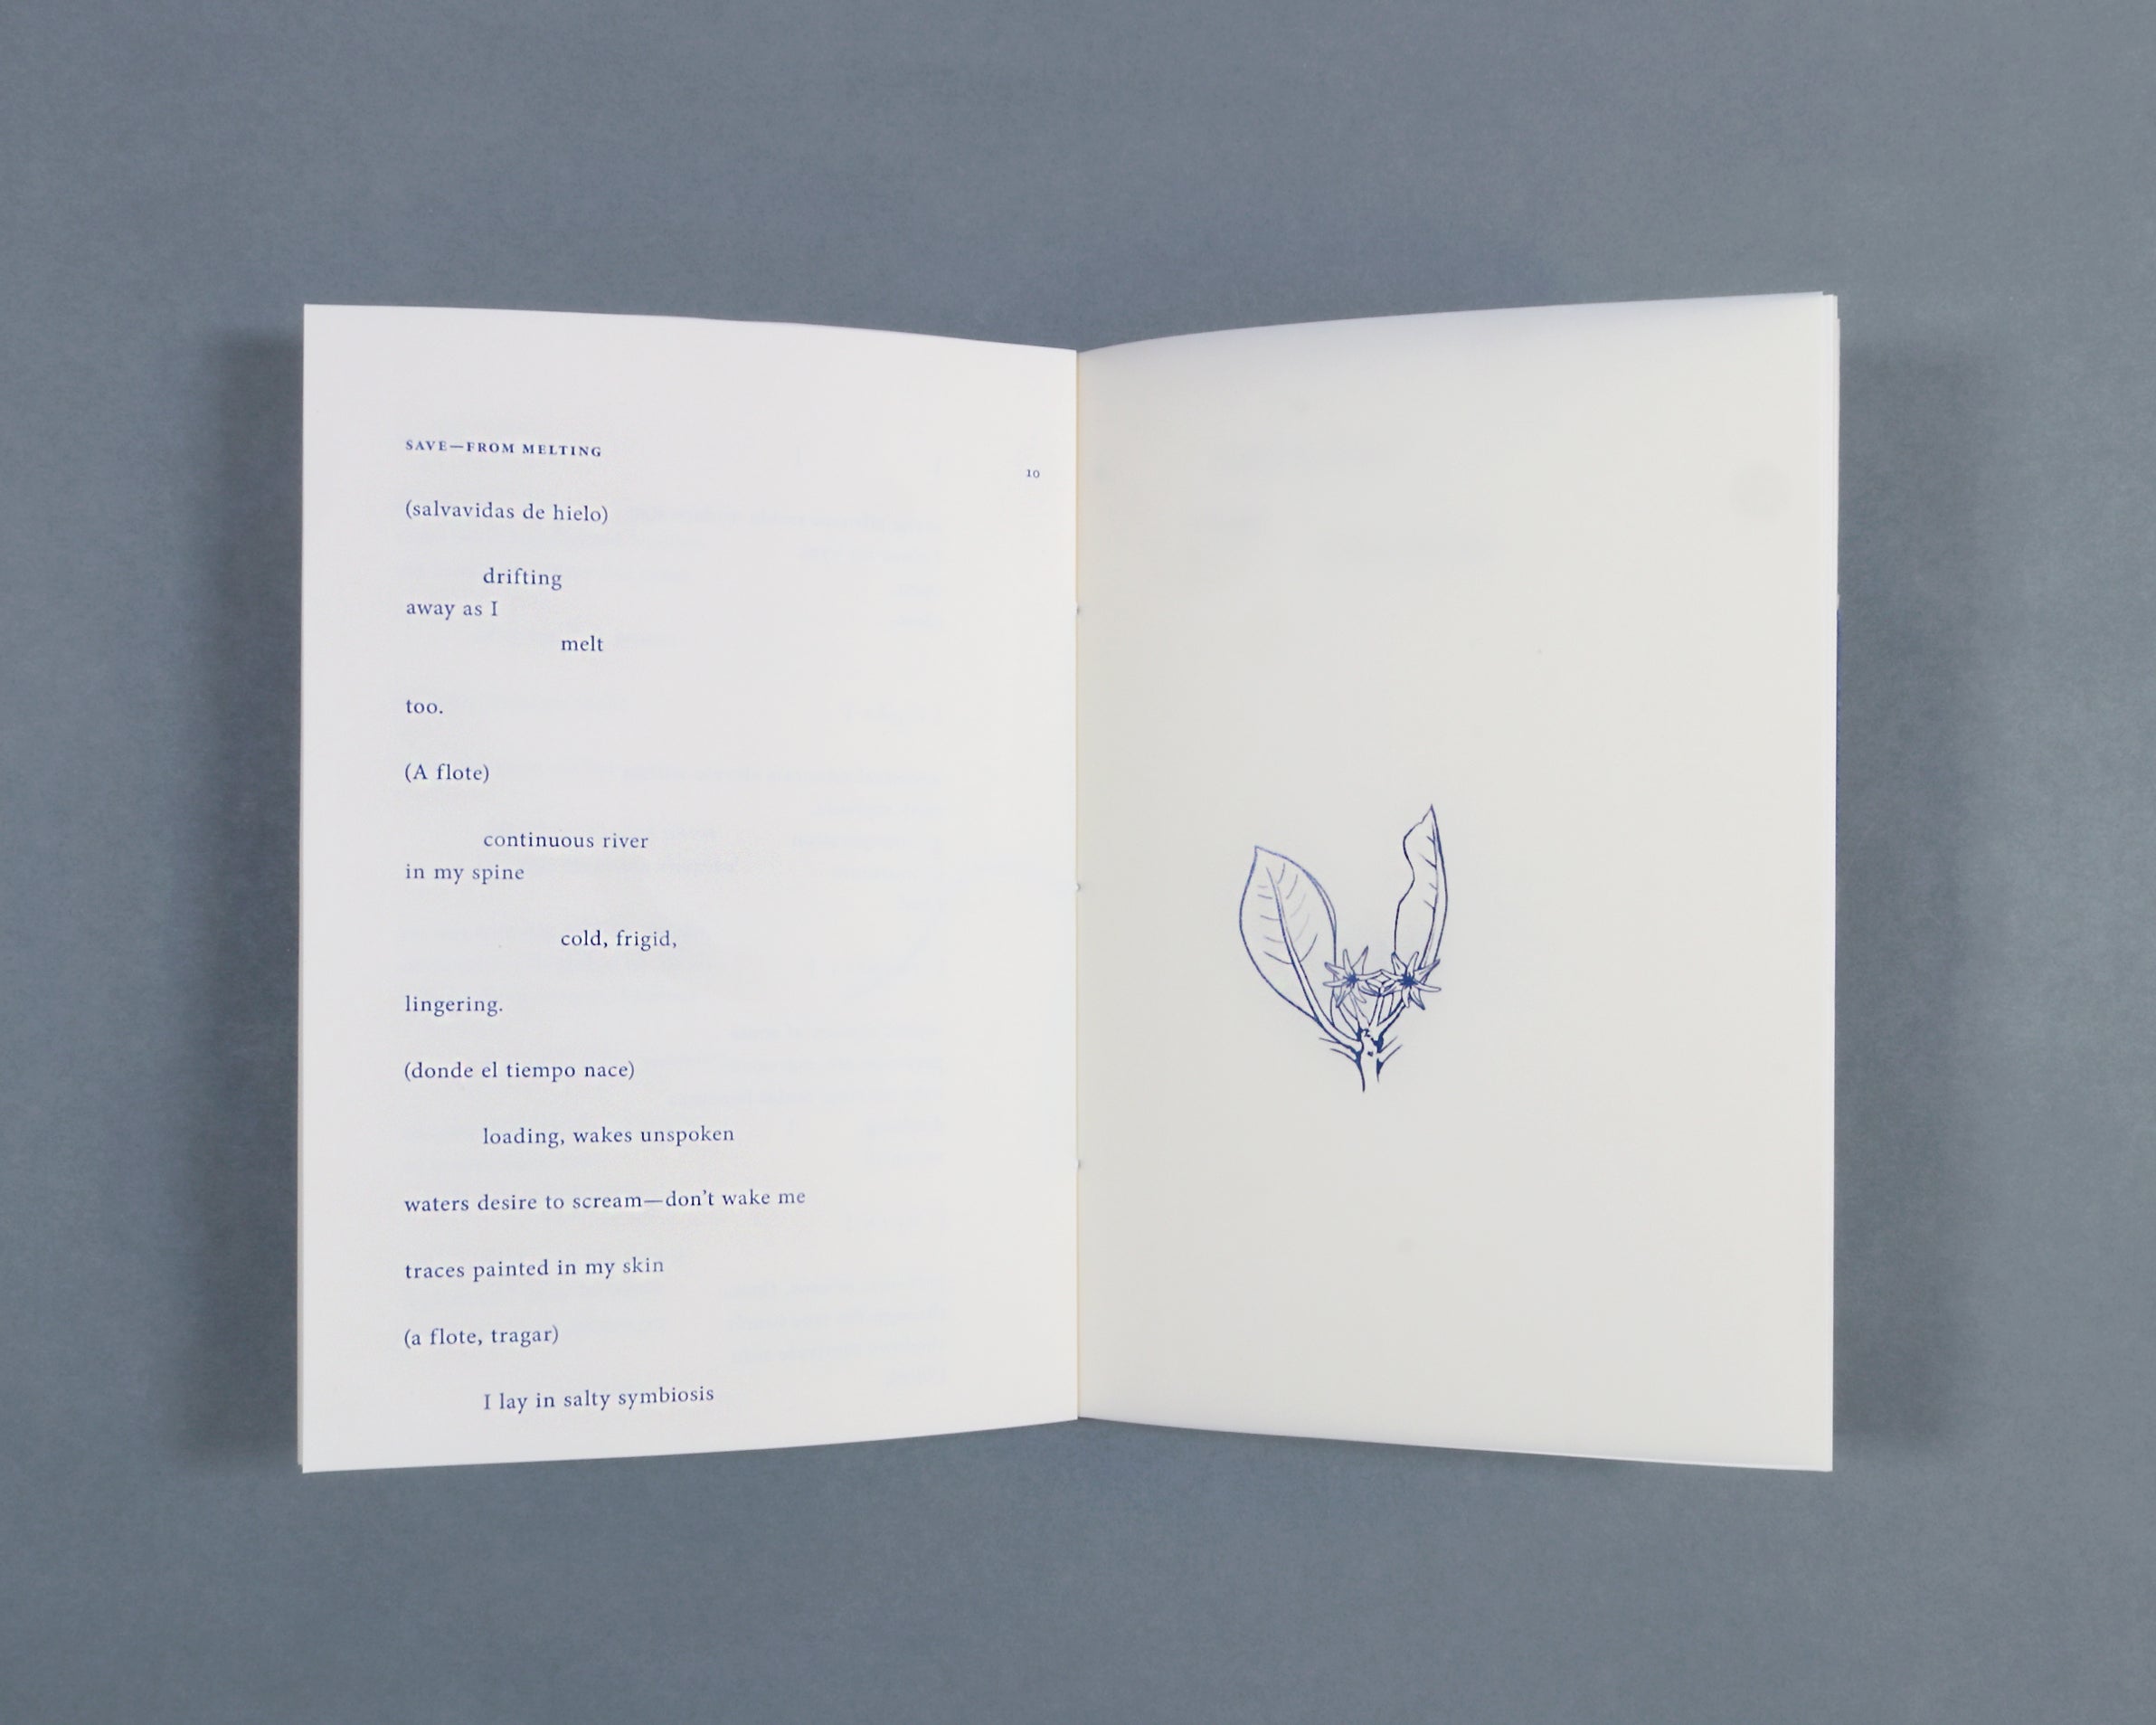 SAVE—FROM MELTING
10
(salvavidas de hielo)
drifting
away as I
melt
too.
(A flote)
continuous river
in my spine
cold, frigid,
lingering.
(donde el tiempo nace)
loading, wakes unspoken
waters desire to scream—don’t wake me
traces painted in my skin
(a flote, tragar)
I lay in salty symbiosis